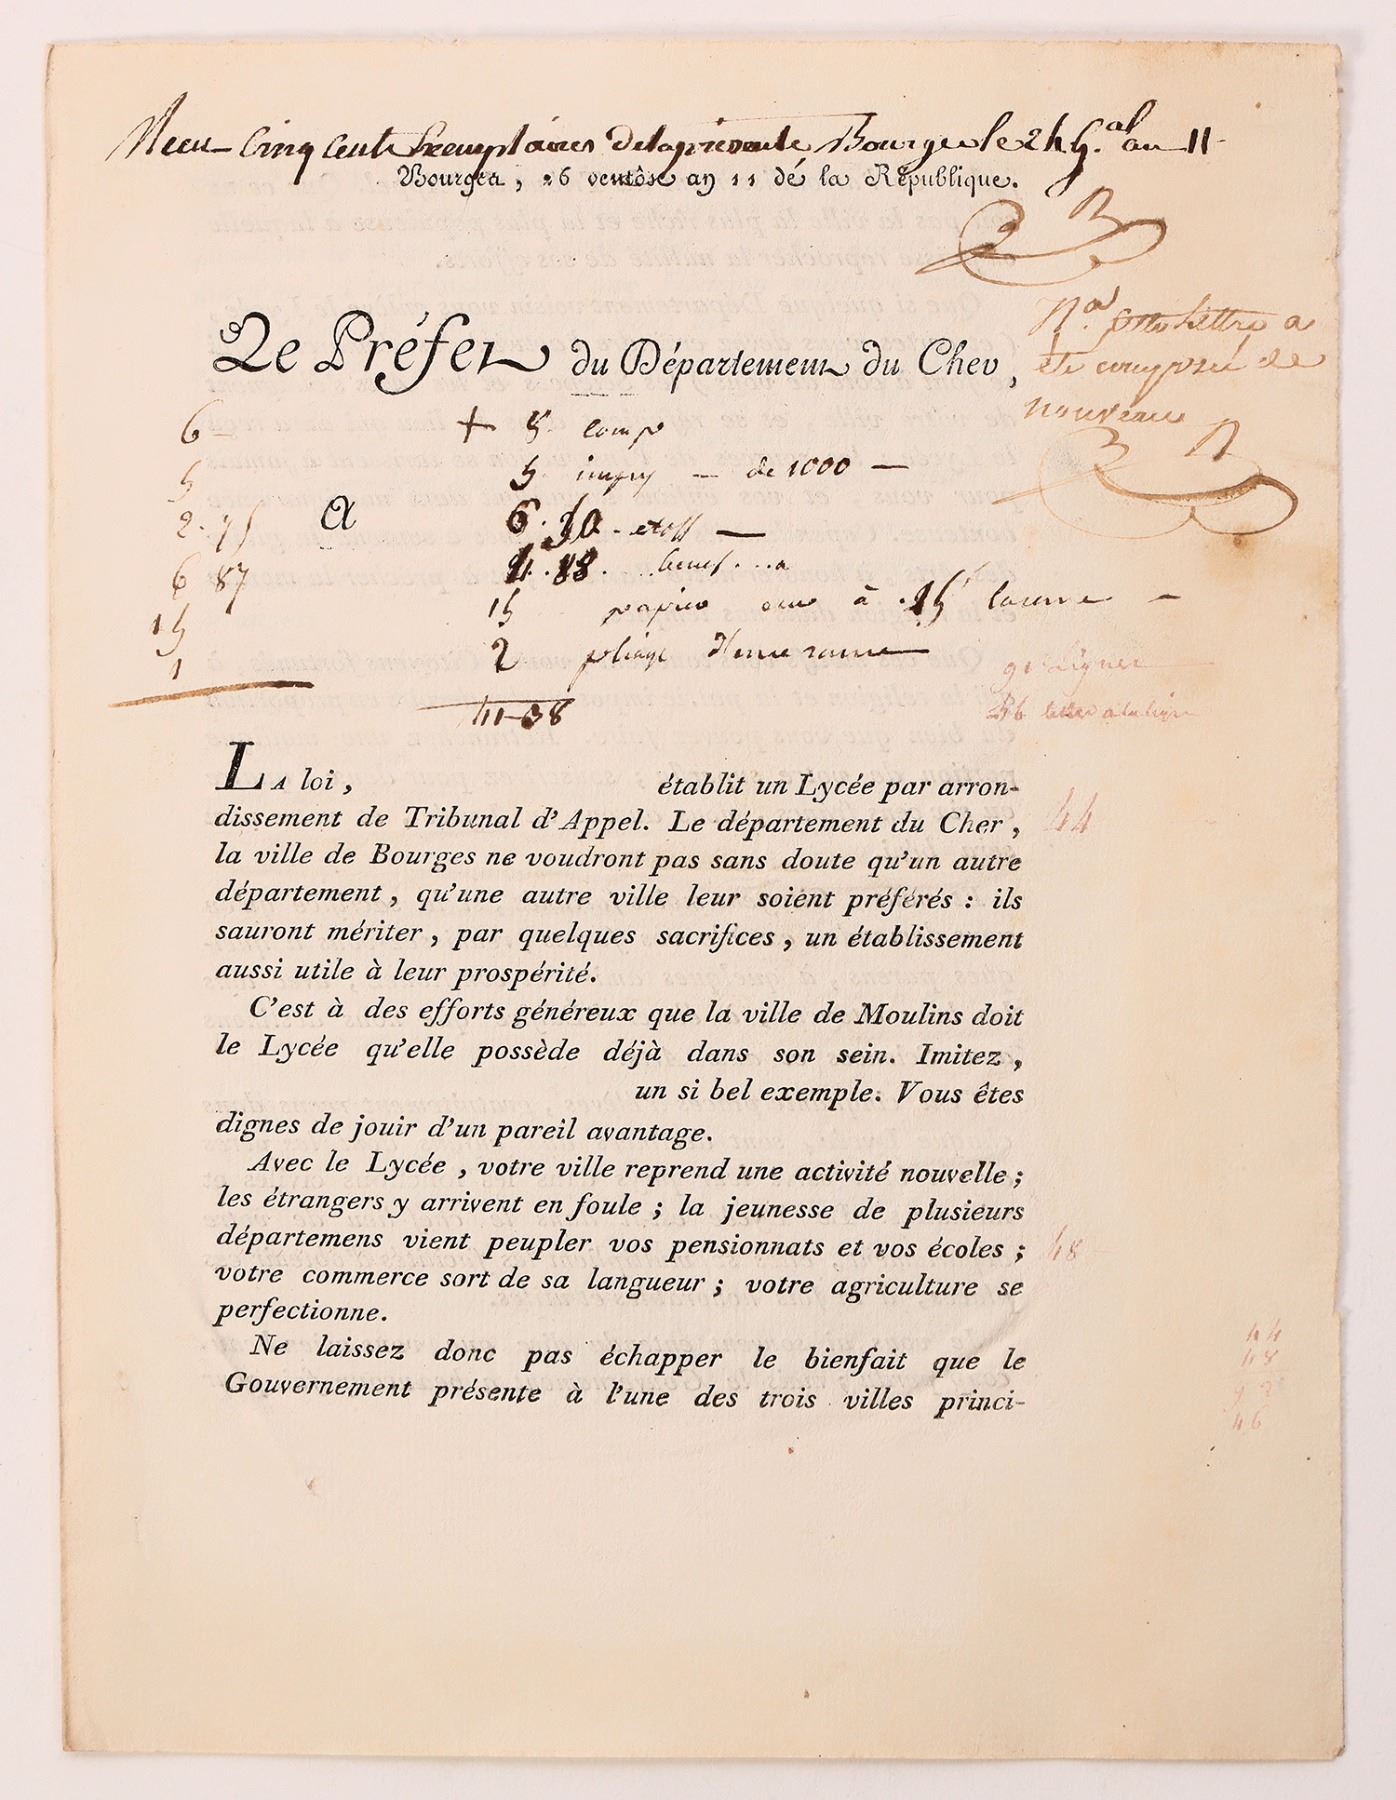 Recu cinq cents Exemplaires de la presente Bourges le 24 G.al an 11
Bourges, 26 ventôse an 11 de la République.
N.a cette lettre a
été composé de
nouveau
Le Préfet du Département du Cher,
6 -
5
2. 75
6 87
15
1
+ 5. comp
5 imp - de 1000 -
6. 50 - étoff -
4. 88.
15 papier à 15 la rame -
2 pliage d'une rame
41-38
92 lignes
46 lettres a la ligne
a
LA loi, établit un Lycée par arron-
dissement de Tribunal d'Appel. Le département du Cher,
44
la ville de Bourges ne voudront pas sans doute qu'un autre
département, qu'une autre ville leur soient préférés : ils
sauront mériter, par quelques sacrifices, un établissement
aussi utile à leur prospérité.
C'est à des efforts généreux que la ville de Moulins doit
le Lycée qu'elle possède déjà dans son sein. Imitez,
un si bel exemple. Vous êtes
dignes de jouir d'un pareil avantage.
Avec le Lycée, votre ville reprend une activité nouvelle ;
les étrangers y arrivent en foule ; la jeunesse de plusieurs
départemens vient peupler vos pensionnats et vos écoles ;
48
votre commerce sort de sa langueur ; votre agriculture se
perfectionne.
Ne laissez donc pas échapper le bienfait que le
Gouvernement présente à l'une des trois villes princi-
44
48
92
46